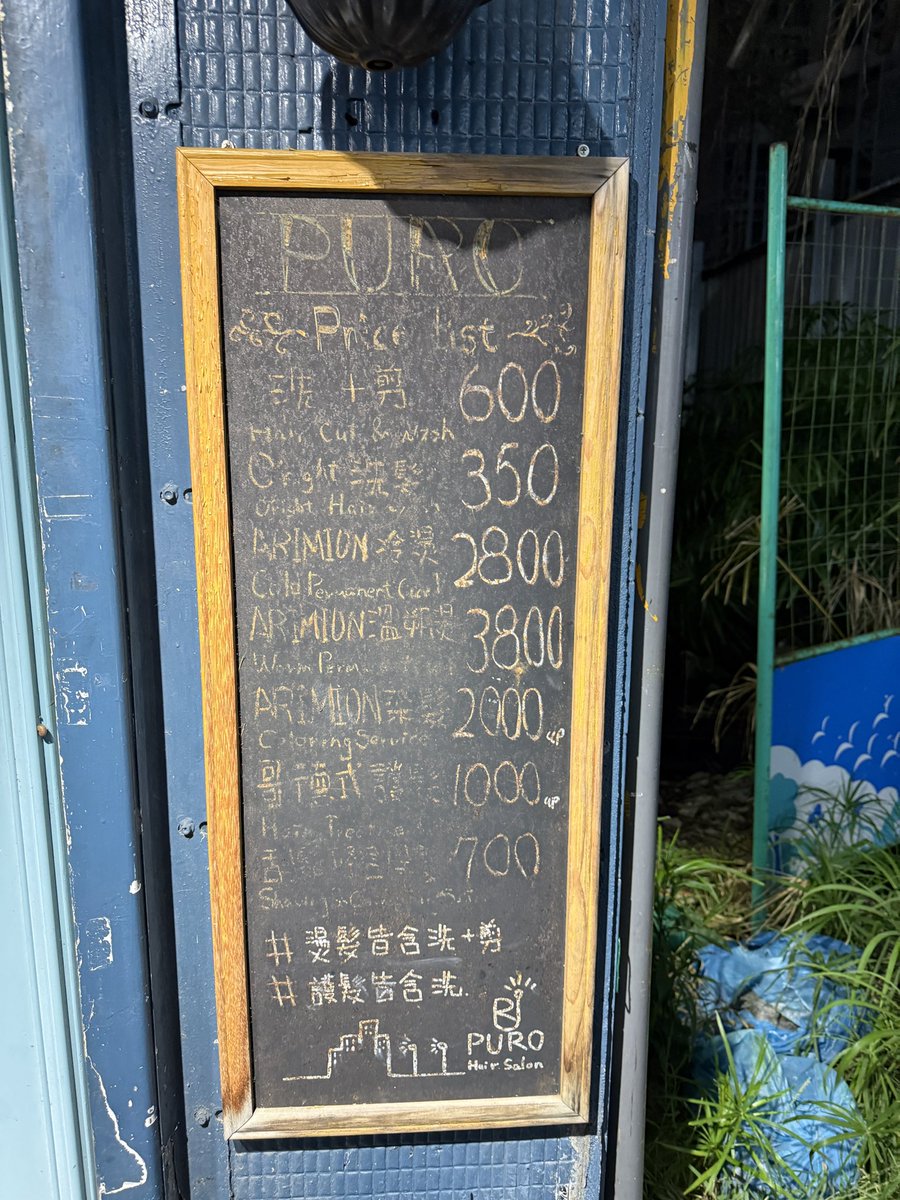 PURO
Price list
洗 + 剪 600
Hair Cut & Wash
O'right 洗髮 350
O'right Hair
ARIMION 冷燙 2800
Cold Permanent
ARIMION 溫塑燙 3800
Warm Perm
ARIMION 染髮 2000 up
Coloring Service
哥德式 護髮 1000 up
Hair Treatment
700
Shaving
# 燙髮皆含洗+剪
# 護髮皆含洗.
PURO
Hair Salon